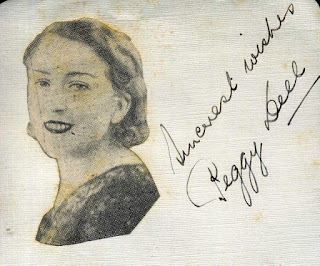 Sincerest wishes
Peggy Dell